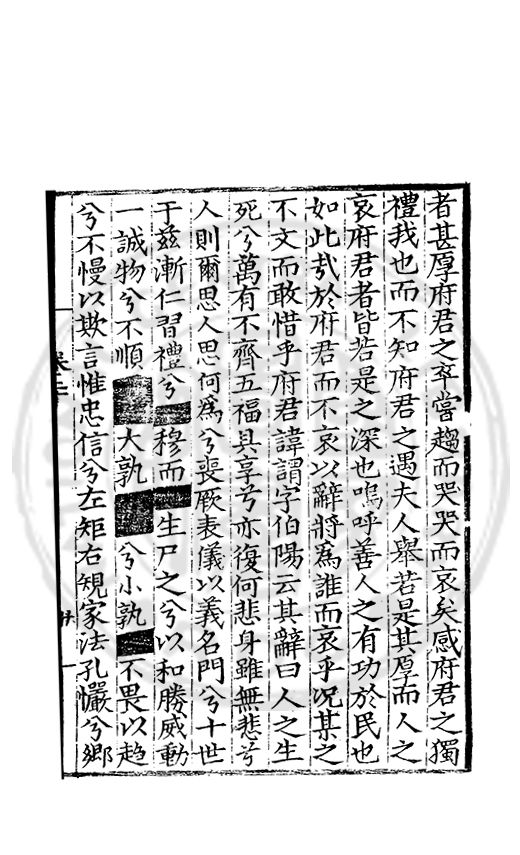 者甚厚府君之卒嘗趨而哭哭而哀矣感府君之獨
禮我也而不知府君之遇夫人舉若是其厚而人之
哀府君者皆若是之深也嗚呼善人之有功於民也
如此哉於府君而不哀以辭將爲誰而哀乎况某之
不文而敢惜乎府君諱謂字伯陽云其辭曰人之生
死兮萬有不齊五福具享兮亦復何悲身雖無悲兮
人則爾思人思何爲兮喪厥表儀以義名門兮十世
于兹漸仁習禮兮 穆而 生尸之兮以和勝威動
一誠物兮不順 大孰 兮小孰 不畏以趋
兮不慢以欺言惟忠信兮左矩右規家法孔懺兮鄉